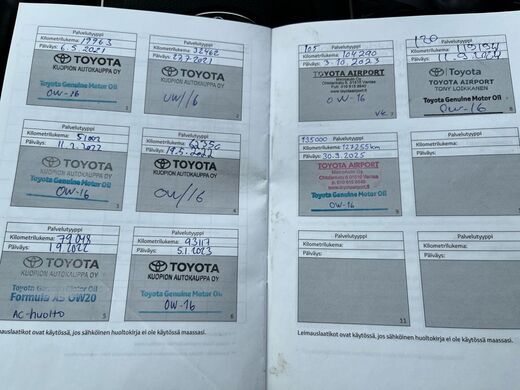 Palvelutyyppi
Kilometrilukema: 19963
Päiväys: 6.5.2021
TOYOTA
KUOPION AUTOKAUPPA OY
Toyota Genuine Motor Oil
OW-16
1
Palvelutyyppi
Kilometrilukema: 32462
Päiväys:
TOYOTA
KUOPION AUTOKAUPPA OY
OW/16
2
Palvelutyyppi
Kilometrilukema:
Päiväys: 11.2.2022
TOYOTA
Toyota Genuine Motor Oil
OW-16
3
Palvelutyyppi
Kilometrilukema:
Päiväys: 19.5.2022
TOYOTA
KUOPION AUTOKAUPPA OY
OW/16
4
Palvelutyyppi
Kilometrilukema: 79048
Päiväys: 1.9.2022
TOYOTA
KUOPION AUTOKAUPPA OY
Toyota Genuine Motor Oil
Formula A5 OW20
AC-huolto
5
Palvelutyyppi
Kilometrilukema: 93117
Päiväys: 5.1.2023
TOYOTA
KUOPION AUTOKAUPPA OY
Toyota Genuine Motor Oil
OW-16
6
imauslaatikot ovat käytössä, jos sähköinen huoltokirja ei ole käytössä maassasi.
Palvelutyyppi
105
Kilometrilukema: 104290
Päiväys: 3.10.2023
TOYOTA AIRPORT
www.toyotaairport.fi
Toyota Genuine Motor Oil
OW-16
7
Palvelutyyppi
120
Kilometrilukema:
Päiväys: 11.9.2024
TOYOTA AIRPORT
TONY LOIKKANEN
Toyota Genuine Motor Oil
OW-16
8
Palvelutyyppi
135000
Kilometrilukema: 127255 km
Päiväys: 30.9.2025
TOYOTA AIRPORT
Toyota Genuine Motor Oil
OW-16
9
Palvelutyyppi
Kilometrilukema:
Päiväys:
Palvelutyyppi
Kilometrilukema:
Päiväys:
11
Palvelutyyppi
Kilometrilukema:
Päiväys:
Leimauslaatikot ovat käytössä, jos sähköinen huoltokirja ei ole käytössä maassasi.